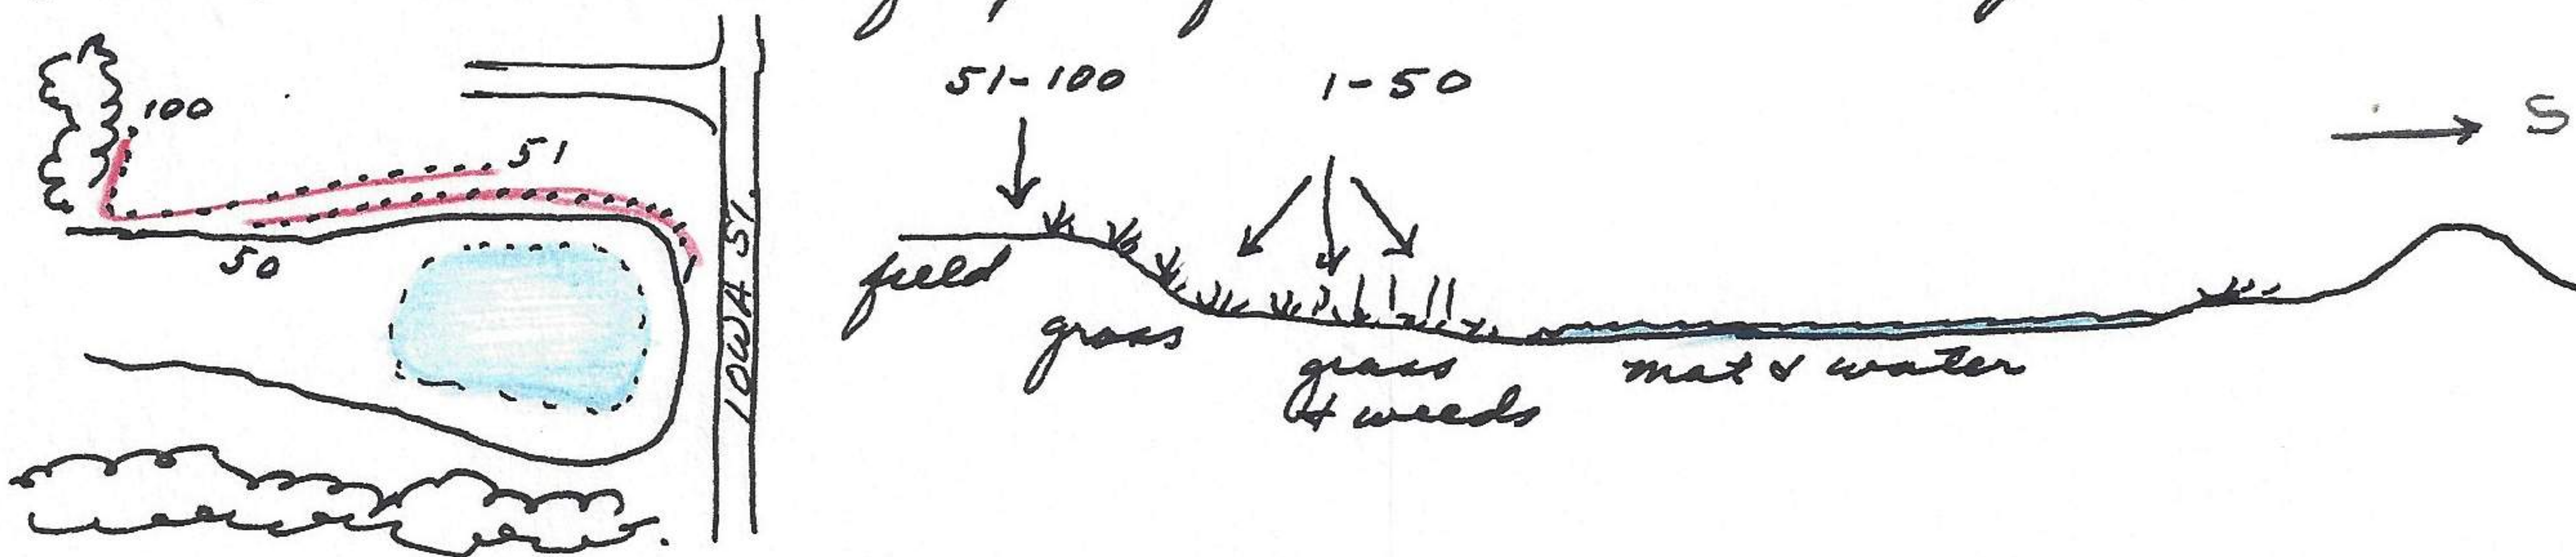 100
51
50
IOWA ST.
51-100
1-50
S
field
grass
grass
& weeds
mat & water